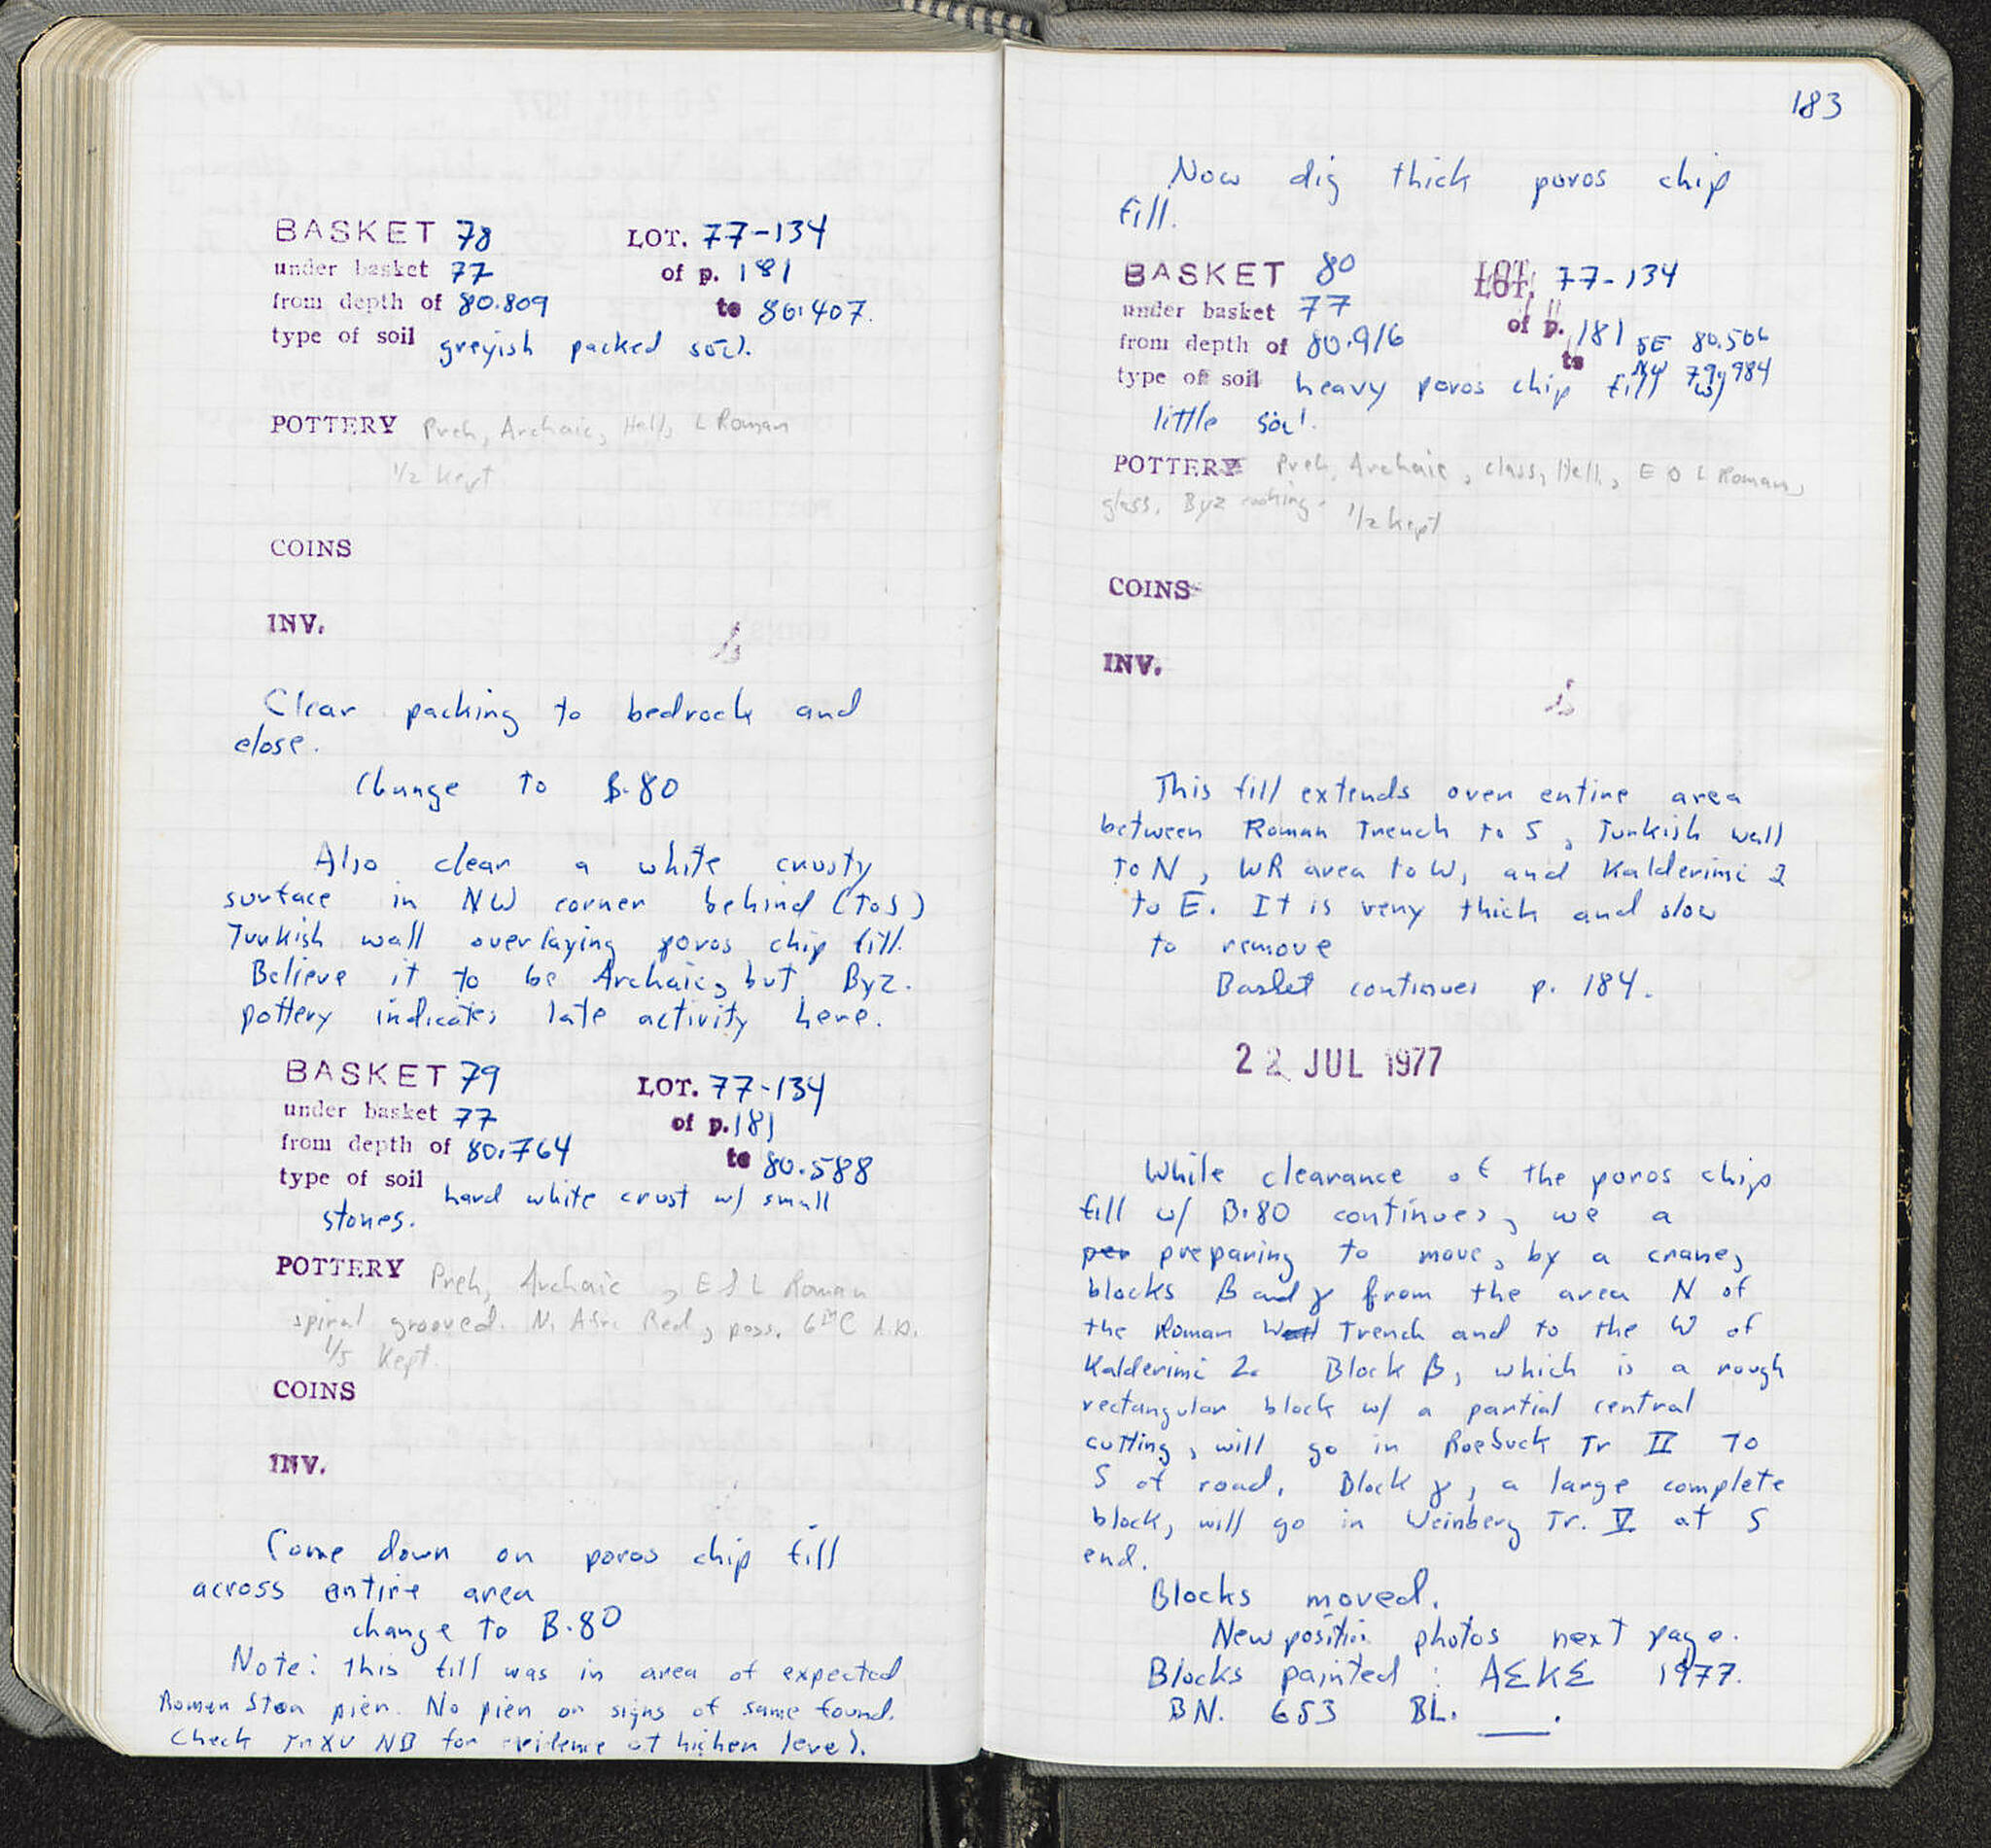 BASKET 78 LOT. 77-134
under basket 77 of p. 181
from depth of 80.809 to 80.407.
type of soil greyish packed soil.
POTTERY Preh, Archaic, Hell, L Roman
1/2 kept
COINS
INV.
Clear packing to bedrock and
close.
Change to B.80
Also clear a white crusty
surface in NW corner behind (to S)
Turkish wall overlaying poros chip fill.
Believe it to be Archaic, but Byz.
pottery indicates late activity here.
BASKET 79 LOT. 77-134
under basket 77 of p. 181
from depth of 80.764 to 80.588
type of soil hard white crust w/ small
stones.
POTTERY Preh, Archaic, E & L Roman
spiral grooved. N. Afr. Red, poss. 6th C A.D.
1/5 kept.
COINS
INV.
Come down on poros chip fill
across entire area
change to B.80
Note: this fill was in area of expected
Roman Stoa pier. No pier or signs of same found.
Check Tr XV NB for evidence at higher level.
183
Now dig thick poros chip
fill.
BASKET 80 LOT. 77-134
under basket 77 of p. 181
from depth of 80.916 to SE 80.506
NW 79.984
type of soil heavy poros chip fill w/
little soil.
POTTERY Preh, Archaic, class, Hell, E & L Roman,
glass, Byz cooking. 1/2 kept
COINS
INV.
This fill extends over entire area
between Roman Trench to S, Turkish wall
to N, WR area to W, and Kalderimi 2
to E. It is very thick and slow
to remove
Basket continues p. 184.
22 JUL 1977
While clearance of the poros chip
fill w/ B.80 continues, we a
per preparing to move, by a crane,
blocks β and γ from the area N of
the Roman Wall Trench and to the W of
Kalderimi 2. Block β, which is a rough
rectangular block w/ a partial central
cutting, will go in Roebuck Tr II to
S of road. Block γ, a large complete
block, will go in Weinberg Tr. V at S
end.
Blocks moved.
New position photos next page.
Blocks painted: ΑΣΚΣ 1977.
BN. 653 BL. ___.